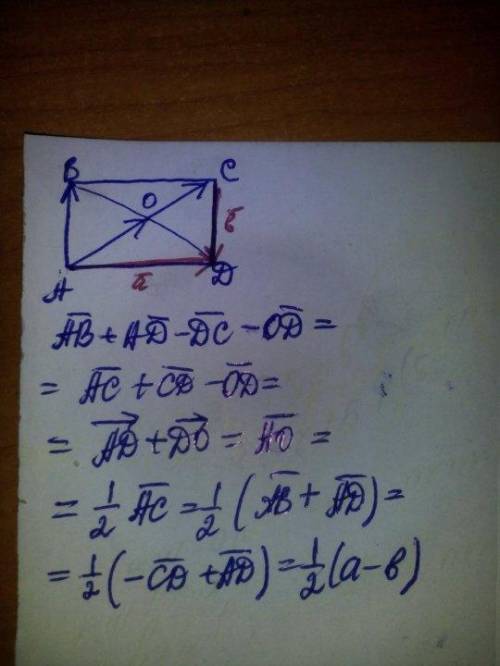 B C
O
в̅
A a̅ D
A̅B̅ + A̅D̅ - D̅C̅ - O̅D̅ =
= A̅C̅ + C̅D̅ - O̅D̅ =
= A⃗D⃗ + D⃗O⃗ = A̅O̅ =
= 1/2 A̅C̅ = 1/2 (A̅B̅ + A̅D̅) =
= 1/2 (-C̅D̅ + A̅D̅) = 1/2 (a - в)